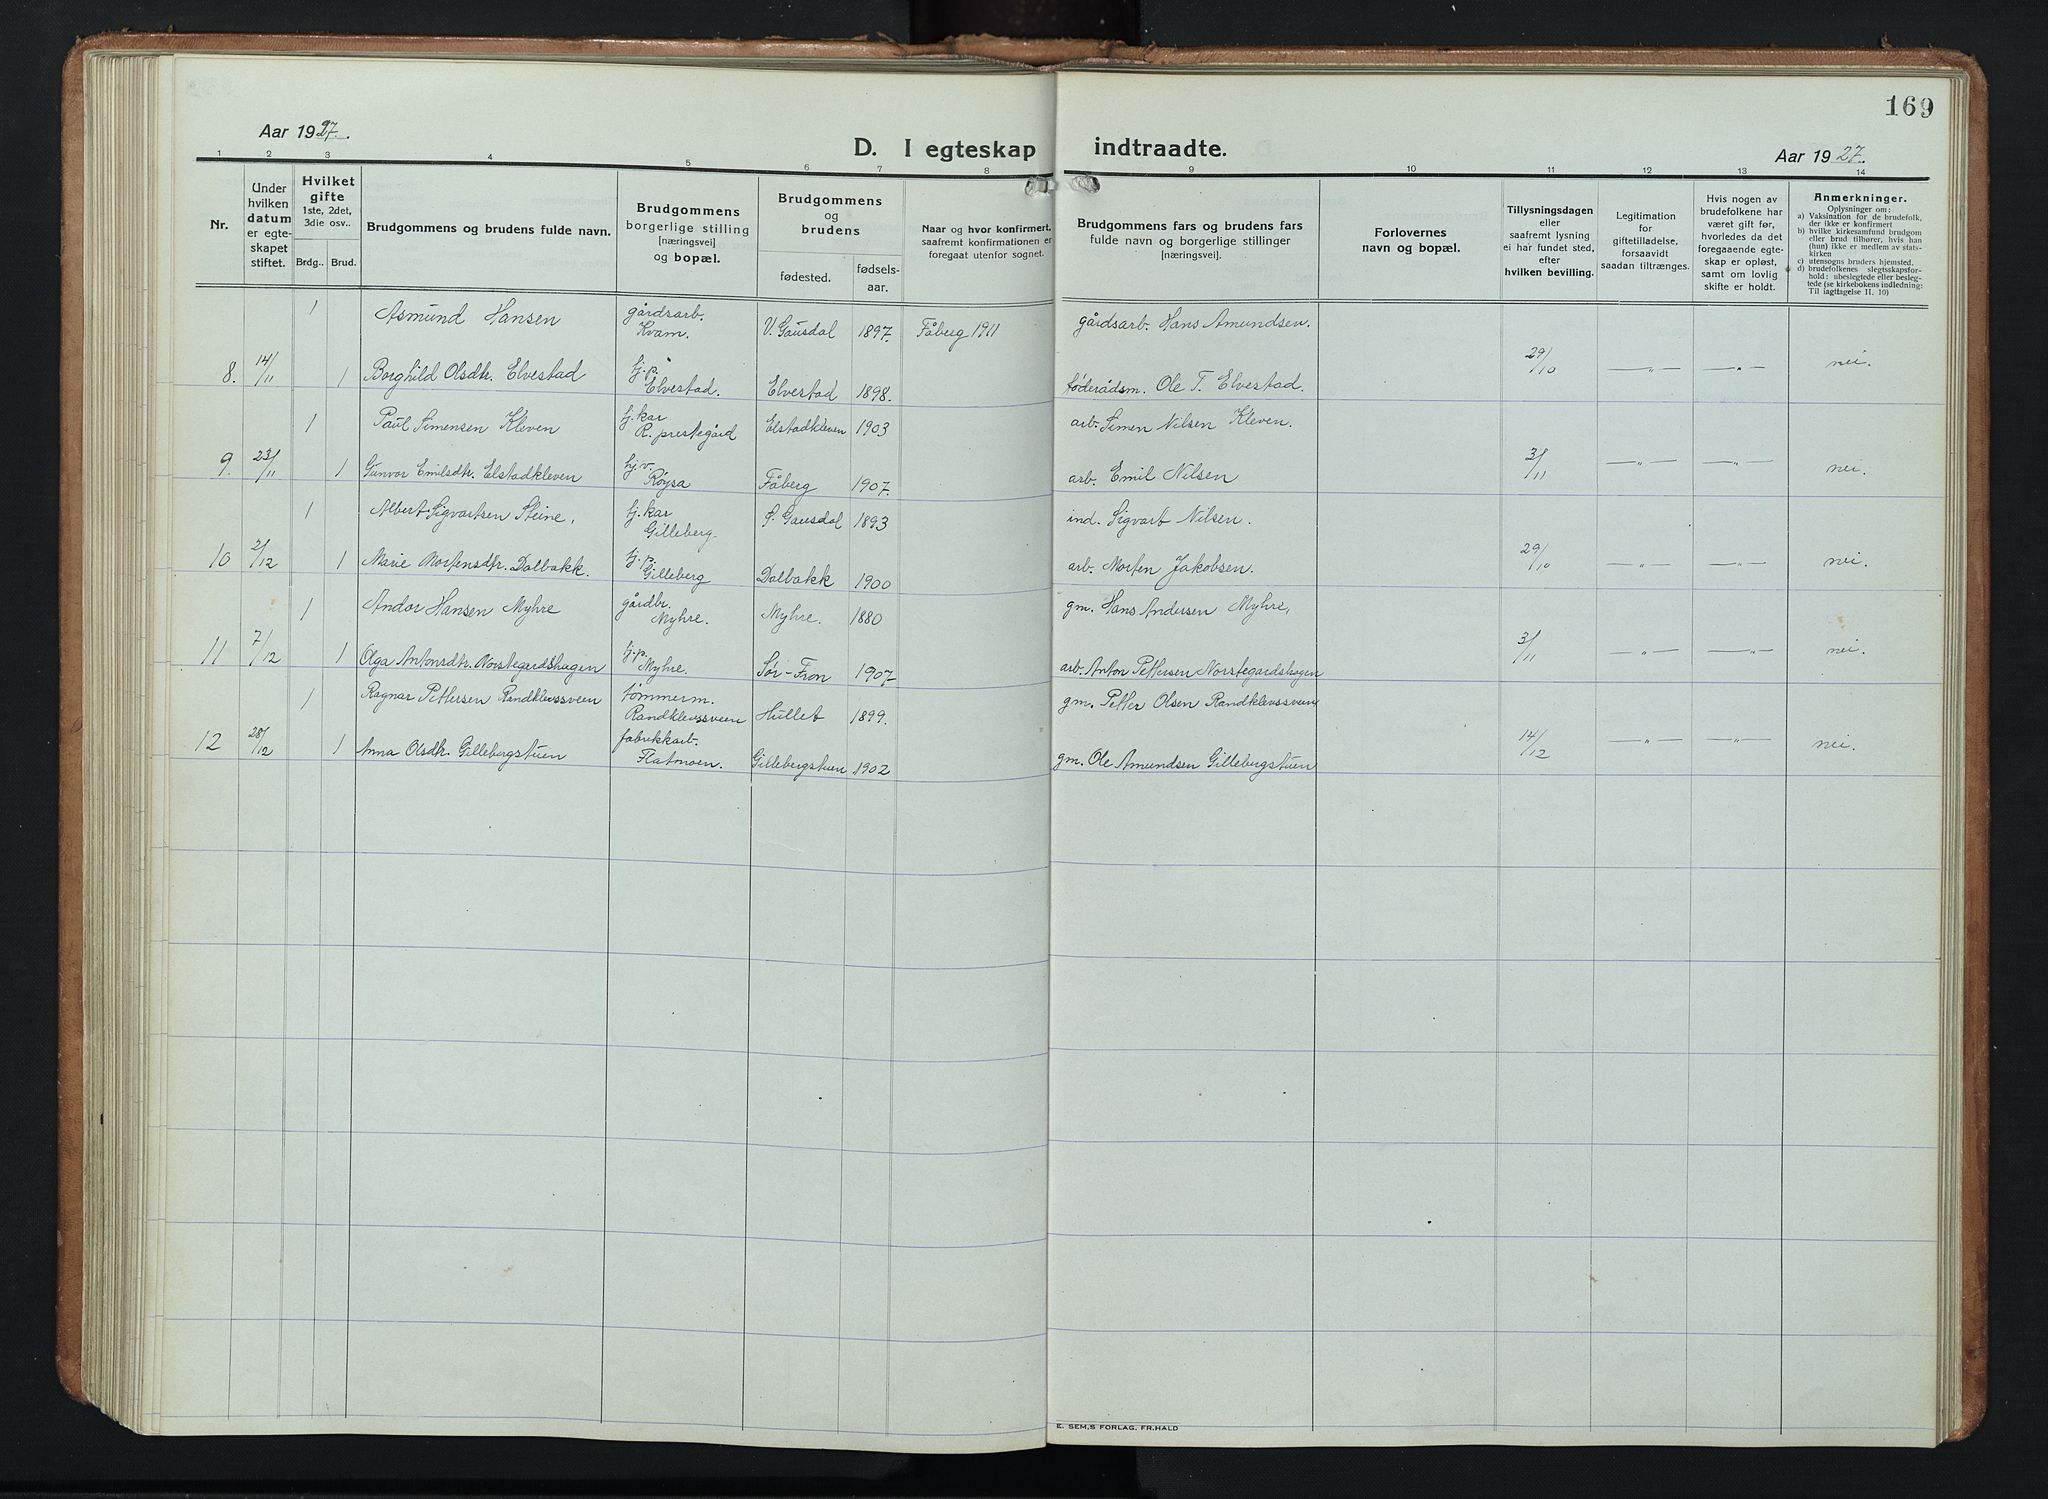 169
Aar 1927.
D. I egteskap indtraadte.
Aar 1927.
1 2 3 4 5 6 7 8 9 10 11 12 13 14
Nr.
Under hvilken datum er egteskapet stiftet.
Hvilket gifte
1ste, 2det, 3die osv..
Brdg.. Brud.
Brudgommens og brudens fulde navn.
Brudgommens borgerlige stilling [næringsvei] og bopæl.
Brudgommens og brudens
fødested.
fødsels-aar.
Naar og hvor konfirmert, saafremt konfirmationen er foregaat utenfor sognet.
Brudgommens fars og brudens fars fulde navn og borgerlige stillinger [næringsvei].
Forlovernes navn og bopæl.
Tillysningsdagen eller saafremt lysning ei har fundet sted, efter hvilken bevilling.
Legitimation for giftetilladelse, forsaavidt saadan tiltrænges.
Hvis nogen av brudefolkene har været gift før, hvorledes da det foregaaende egteskap er opløst, samt om lovlig skifte er holdt.
Anmerkninger.
Oplysninger om:
a) Vaksination for de brudefolk, der ikke er konfirmert
b) hvilke kirkesamfund brudgom eller brud tilhører, hvis han (hun) ikke er medlem av statskirken
c) utensogns bruders hjemsted.
d) brudefolkenes slegtsskapsforhold: ubeslegtede eller beslegtede (se kirkebokens indledning: Til iagttagelse II. 10)
1 Asmund Hansen gårdsarb. Kvam. V. Gausdal 1897. Fåberg 1911 gårdsarb. Hans Amundsen.
8. 14/11 1 Borghild Olsdtr. Elvestad tj.p. Elvestad. Elvestad 1898. føderådsm. Ole T. Elvestad. 29/10 —„— —„— nei.
1 Paul Simensen Kleven tj. kar R. prestegård Elstadkleven 1903 arb. Simen Nilsen Kleven.
9. 23/11 1 Gunvor Emilsdtr. Elstadkleven tj.v. Røysa Fåberg 1907. arb. Emil Nilsen 3/11 —„— —„— nei.
1 Albert Sigvartsen Steine, tj. kar Gilleberg. S. Gausdal 1893 ind. Sigvart Nilsen.
10 2/12 1 Marie Mortensdtr. Dalbakk. tj.p. Gilleberg Dalbakk 1900 arb. Morten Jakobsen. 29/10 —„— —„— nei.
1 Andor Hansen Myhre gårdbr. Myhre. Myhre. 1880 gm. Hans Andersen Myhre,
11 7/12 1 Olga Antonsdtr. Norstegardshagen tj.p. Myhre. Sør-Fron 1907 arb. Anton Pettersen Norstegardshagen 3/11 —„— —„— nei.
1 Ragnar Pettersen Randklevssveen tømmerm. Randklevssveen Hullet 1899. gm. Petter Olsen Randklevssveen
12 28/12 1 Anna Olsdtr. Gillebergstuen fabrikkarb. Flatmoen. Gillebergstuen 1902 gm. Ole Amundsen Gillebergstuen 14/12 —„— —„— nei.
E. SEM,S FORLAG, FR.HALD